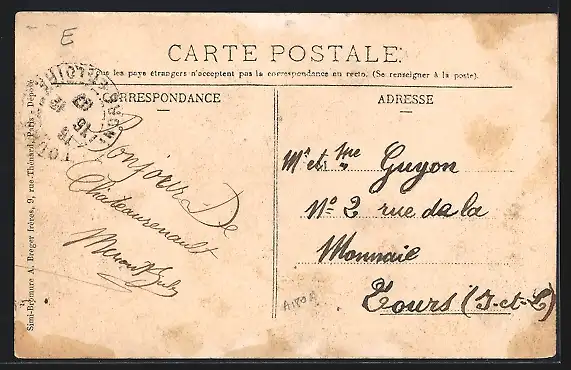 E
CARTE POSTALE
les pays étrangers n'acceptent pas la correspondance au recto. (Se renseigner à la poste).
CORRESPONDANCE
ADRESSE
Simi-Bromure A. Breger frères, 9, rue Thénard, Paris - Déposé
Bonjour De
Chateaurenault
Mr et Mme Guyon
No 2 rue de la
Monnaie
Tours (I-et-L)